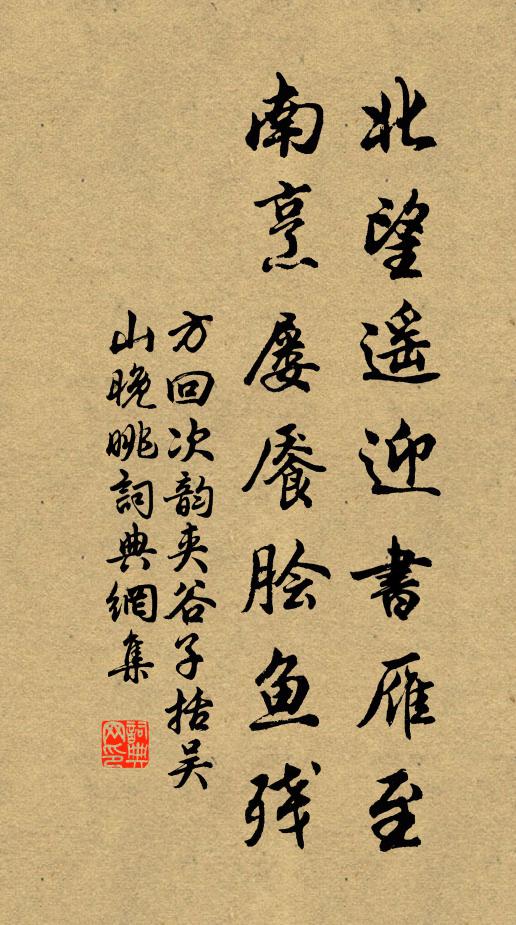 北望遥迎書雁至
南烹屡餍脍鱼残
方回次韵夹谷子括吴
山晚眺詞典網集
詞典網印